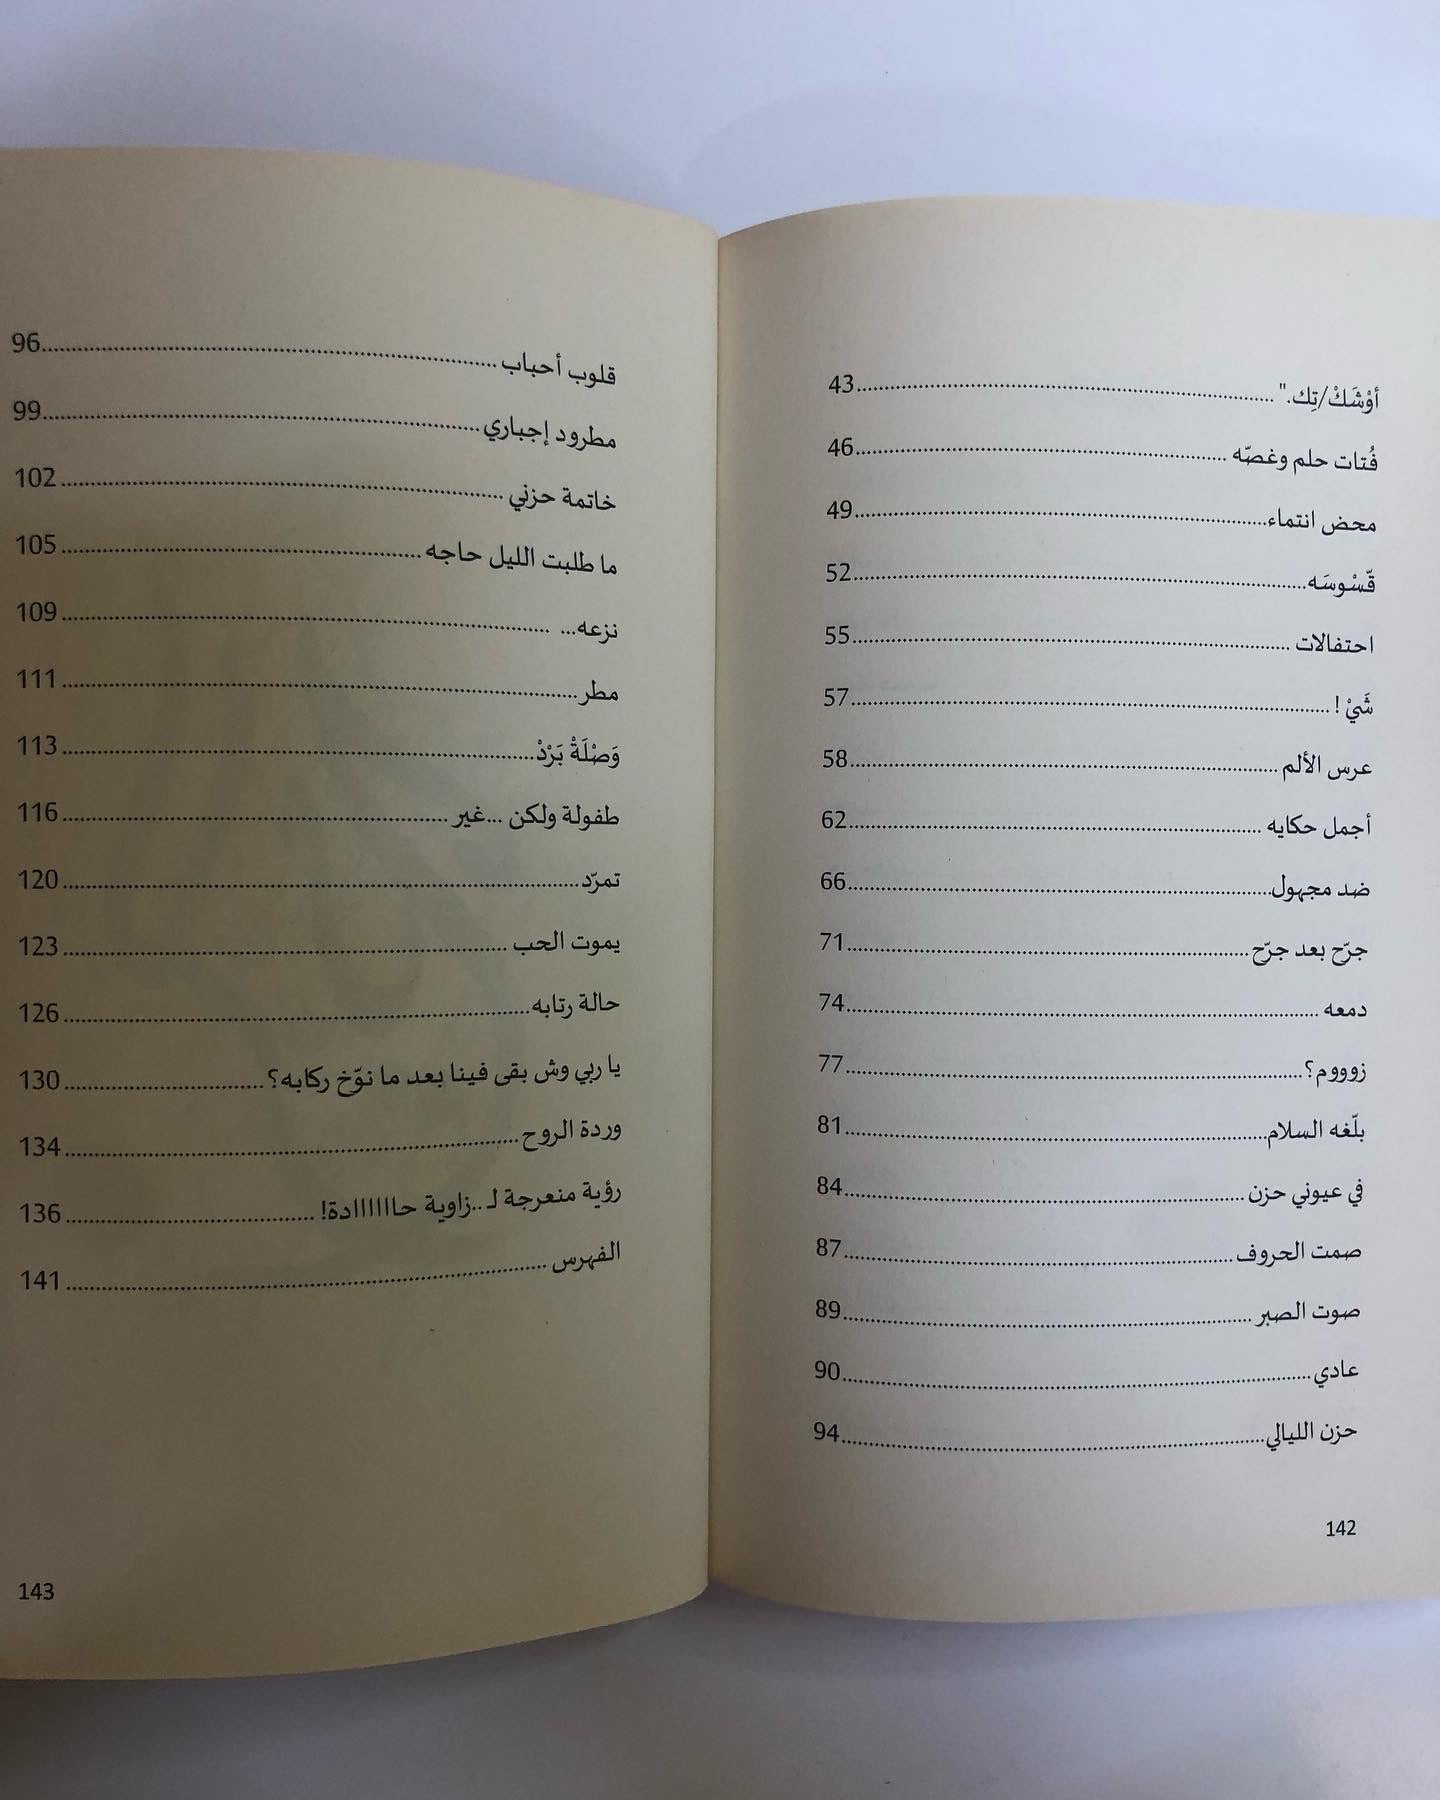 أوْشَكْ/تِك."........43
فُتات حلم وغصّه........46
محض انتماء........49
قّسْوسَه........52
احتفالات........55
شَيْ !........57
عرس الألم........58
أجمل حكايه........62
ضد مجهول........66
جرّح بعد جرّح........71
دمعه........74
زوووم؟........77
بلّغه السلام........81
في عيوني حزن........84
صمت الحروف........87
صوت الصبر........89
عادي........90
حزن الليالي........94
142
قلوب أحباب........96
مطرود إجباري........99
خاتمة حزني........102
ما طلبت الليل حاجه........105
نزعه... ........109
مطر........111
وَصْلَةْ بَرْدْ........113
طفولة ولكن ...غير........116
تمرّد........120
يموت الحب........123
حالة رتابه........126
يا ربي وش بقى فينا بعد ما نوّخ ركابه؟........130
وردة الروح........134
رؤية منعرجة لـ ..زاوية حااااااادة!........136
الفهرس........141
143